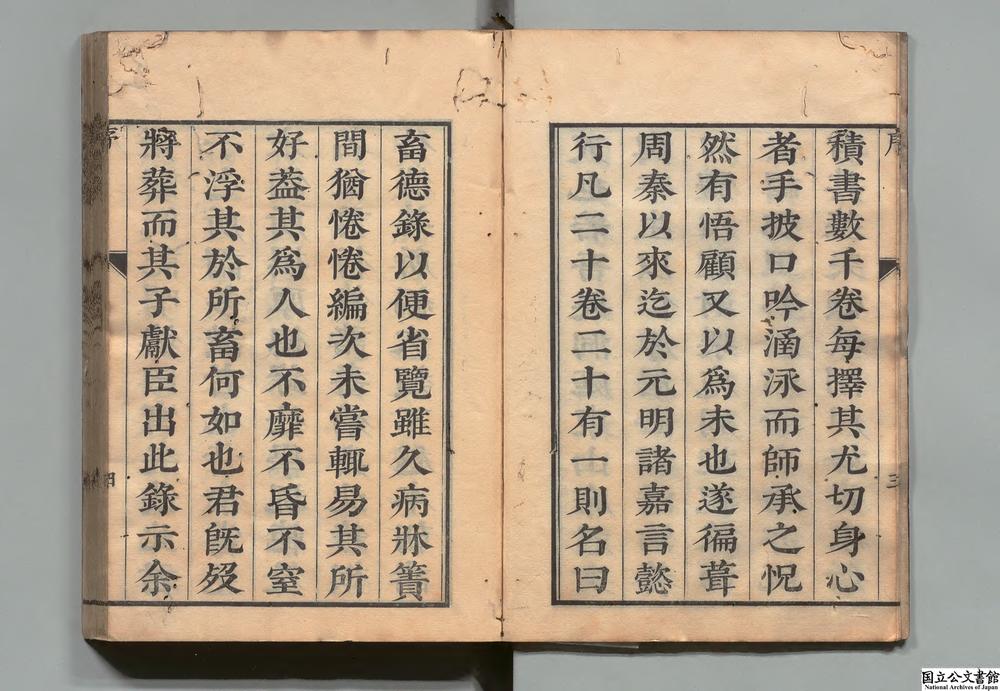 積書數千卷每擇其尤切身心
者手披口吟涵泳而師承之怳
然有悟顧又以爲未也遂徧葺
周秦以來迄於元明諸嘉言懿
行凡二十卷二十有一則名曰
畜德錄以便省覽雖久病牀簀
間猶惓惓編次未嘗輒易其所
好葢其爲人也不靡不昏不窒
不浮其於所畜何如也君旣歿
將葬而其子獻臣出此錄示余
序
三
四
国立公文書館
National Archives of Japan